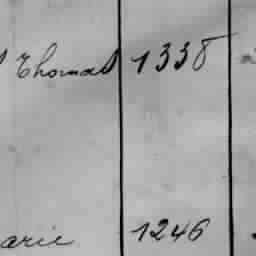 Thomas 1338
arie 1246